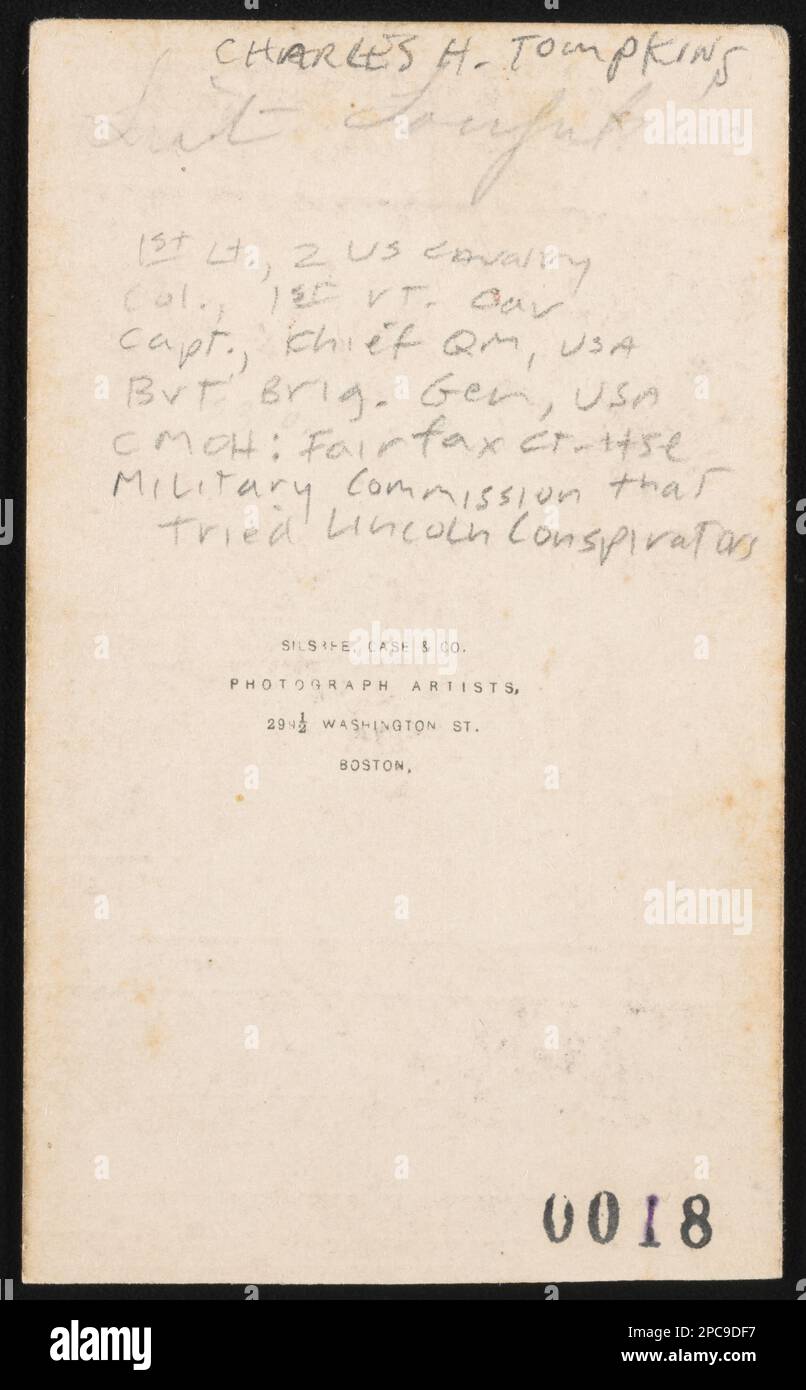 CHARLES H. TOMPKINS
1st Lt., 2 US Cavalry
Col., 1st VT. Cav
Capt., Chief QM, USA
BVT Brig. Gen, USA
CMOH: Fairfax CT. Hse
Military Commission that
tried Lincoln Conspirators
SILSBEE, CASE & CO.
PHOTOGRAPH ARTISTS,
299½ WASHINGTON ST.
BOSTON,
0018
alamy
Image ID: 2PC9DF7
www.alamy.com